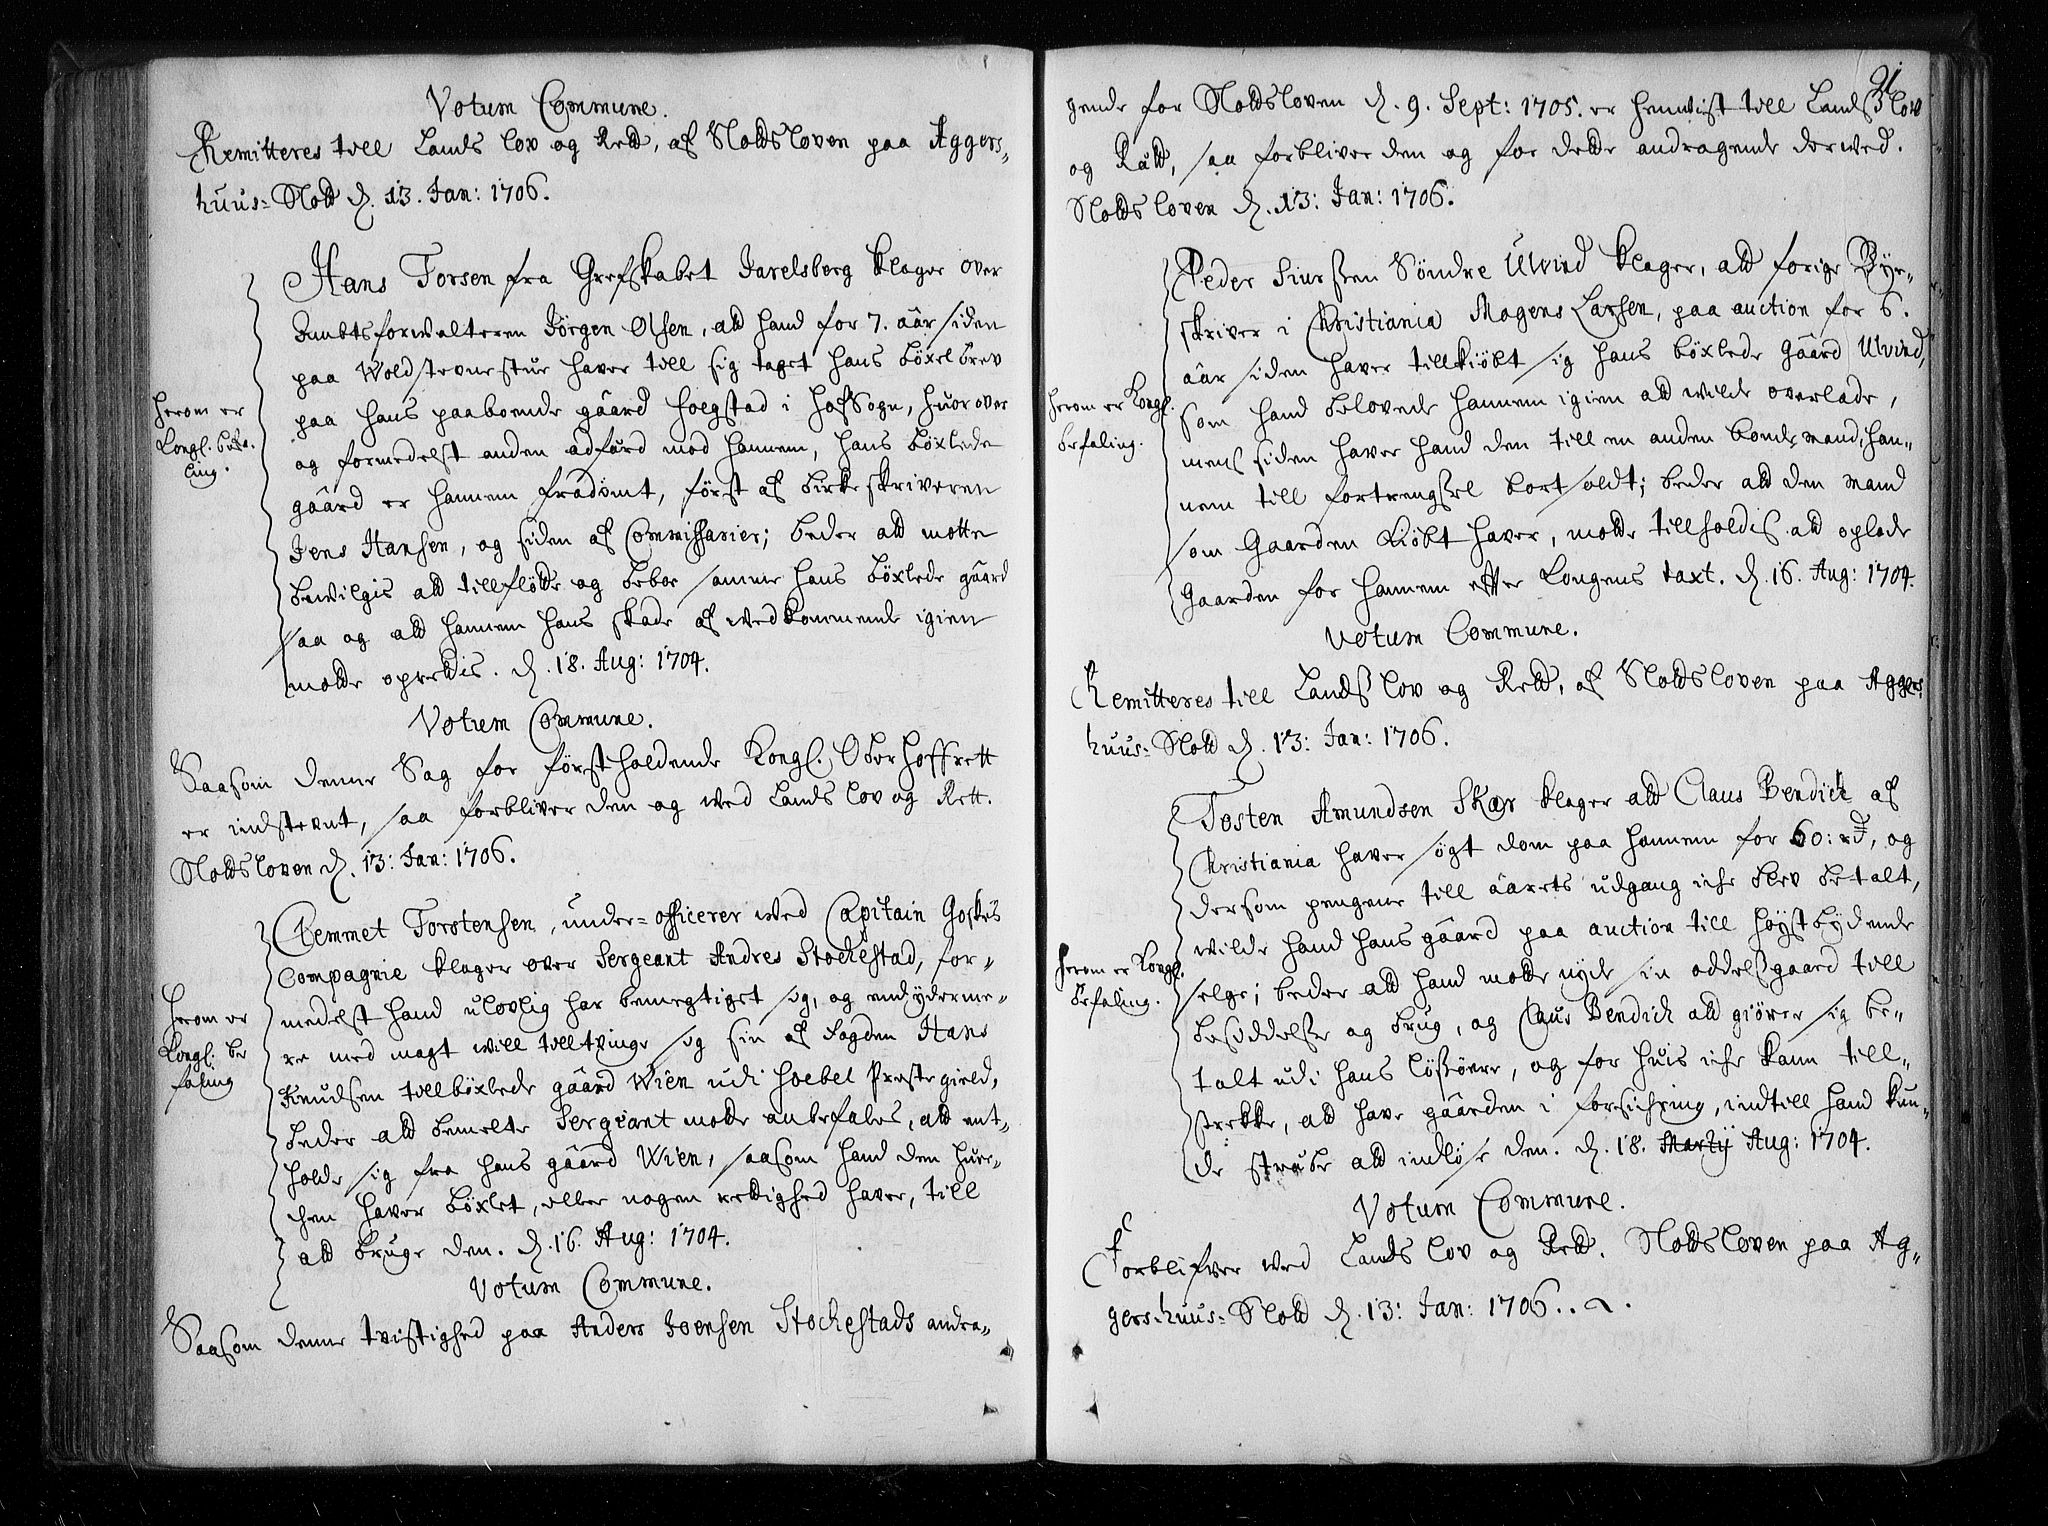 Votum Commune.
Remitteres till Lands lov og Rett, af Slottsloven paa Aggers-
huus-Slott d. 13. Jan: 1706.
Hans Torsen fra Grefskabet Jarelsberg klager over
Ambtsforwalteren Jörgen Olsen, att hand for 7. aar siden
paa Woldstevnestue haver till sig taget hans böxelbrev
paa hans paaboende gaard Holgstad i Hofsogn, huorover
og formedelst anden adfärd mod hannem, hans böxlede
gaard er hannem fradömt, först af birkeskriveren
Jens Hansen, og siden af Commissarier; beder att motte
bevilgis att tillflötte og beboe samme hans böxlede gaard
saa og att hannem hans skade af wedkommende igien
motte oprettis. d. 18. Aug: 1704.
herom er
Kongl. befa-
ling.
Votum Commune.
Saasom denne Sag for först holdende Kongl. OberHoffrett
er indstevnt, saa forbliver den og wed Lands lov og Rett.
Slottsloven d. 13: Jan: 1706.
Clemmet Torstensen, under-officerer wed Capitain Goskes
Compagnie klager over Sergeant Andres Stockestad, for-
medelst hand ulovlig har bemegtiget sig, og endydermee-
re med magt will tilltvinge sig sin af Fogden Hans
Knudsen tillböxlede gaard Wien udi Hoebel Præstegield,
beder att bemelte Sergeant motte anbefales, att ent-
holde sig fra hans gaard Wien, saasom hand den huer-
chen haver böxlet, eller nogen rettighed haver, till
att bruge den. d. 16. Aug: 1704.
Herom er
Kongl. be
faling
Votum Commune.
Saasom denne tvistighed paa Anders Joensen Stockestads andra-
91
gende for Slottsloven d. 9. Sept: 1705. er henvist till Landslov
og Rätt, saa forbliver den og for dette andragende derwed.
Slottsloven d. 13: Jan: 1706.
Peder Siurssen Söndre Ulvind klager, att forige Byr-
skriver i Christiania Mogens Larssen, paa auction for 6.
aar siden haver tillkiöbt sig hans böxlede gaard Ulvind,
som hand belovede hannem igien att wilde overlade,
mens siden haver hand den till en anden bondemand, han-
nem till fortrengsel bortsoldt; beder att den mand
som Gaarden kiöbt haver, motte tillholdis att oplade
Gaarden for hannem effter Longens taxt. d. 16. Aug: 1704.
herom er Kongl.
befaling.
Votum Commune.
Remitteres till Landslov og Rett, af Slottsloven paa Aggers,
huus-Slott d. 13: Jan: 1706.
Tosten Amundsen Skar klager att Claus Bendich af
Christiania haver sögt dom paa hannem for 60: rd, og
dersom pengene till aarets udgang iche blev betalt,
wilde hand hans gaard paa auction till höystbydende
selge; beder att hand motte nyde sin oddelsgaard till
besiddelse og brug, og Claus Bendich att giöre sig be-
talt udi hans lössöere, og for huis iche kann till-
strekke, att have gaarden i forsichring, indtill hand kun-
de strebe att indlöse den. d. 18. Martij Aug: 1704.
herom er Kongl.
befaling.
Votum Commune.
Forblifver wed Lands lov og Rett. Slottsloven paa Ag-
gershuus-Slott d. 13: Jan: 1706.